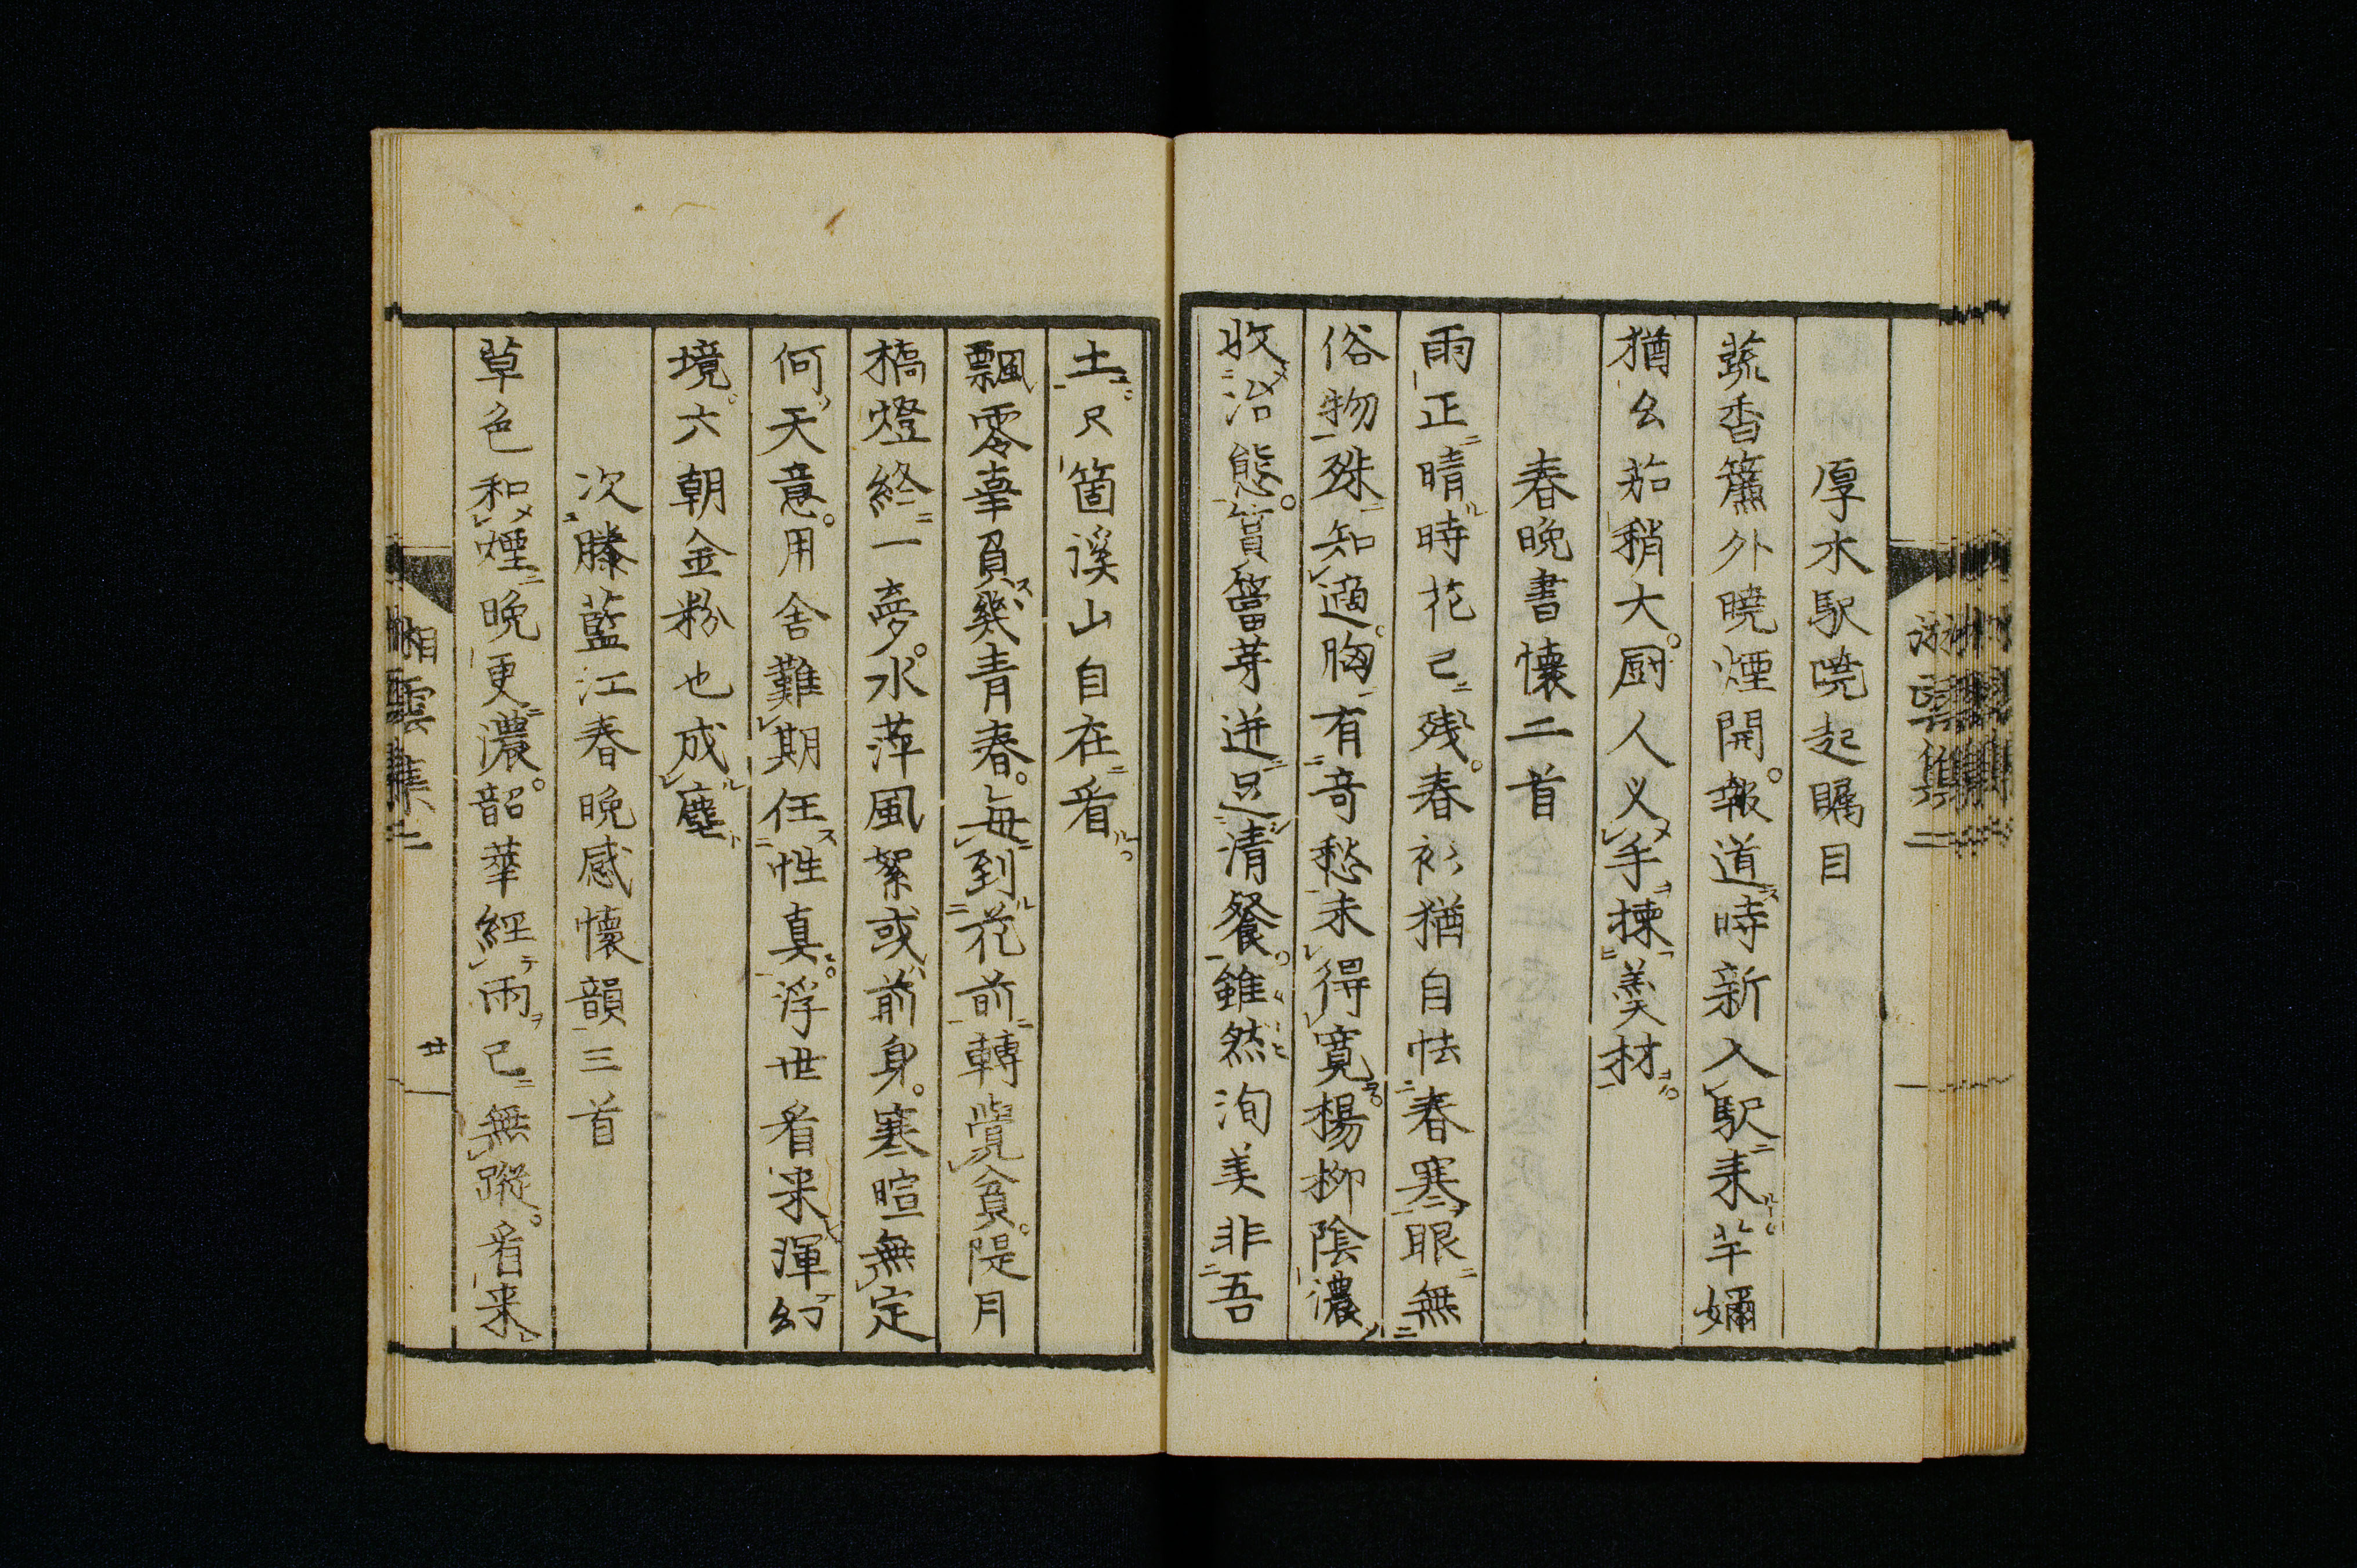 厚水駅暁起矚目
蔬香簾外曉煙開報道時新入駅来芋嬭
猶幺茄稍大厨人义手揀羹材
春晩書懐二首
雨正晴時花已残春衫猶自怯春寒眼無
俗物殊知適胸有竒愁未得寛楊柳陰濃
收冶態篔簹芽迸足清餐雖然洵美非吾
土只箇溪山自在看
飄零辜負幾青春毎到花前轉覺貧隄月
橋燈終一夢水萍風絮或前身寒暄無定
何天意用舎難期任性真浮世看来渾幻
境六朝金粉也成塵
次滕藍江春晩感懐韻三首
草色和煙晩更濃韶華経雨已無蹤看来
湘雲集二
廿